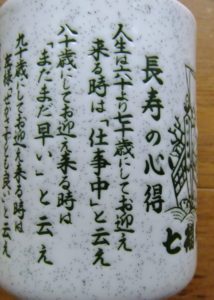 長寿の心得
人生は六十より七十歳にしてお迎え
来る時は「仕事中」と云え
八十歳にしてお迎え来る時は
「まだまだ早い」と云え
九十歳にしてお迎え来る時は
せかずとも良いと云え
七福